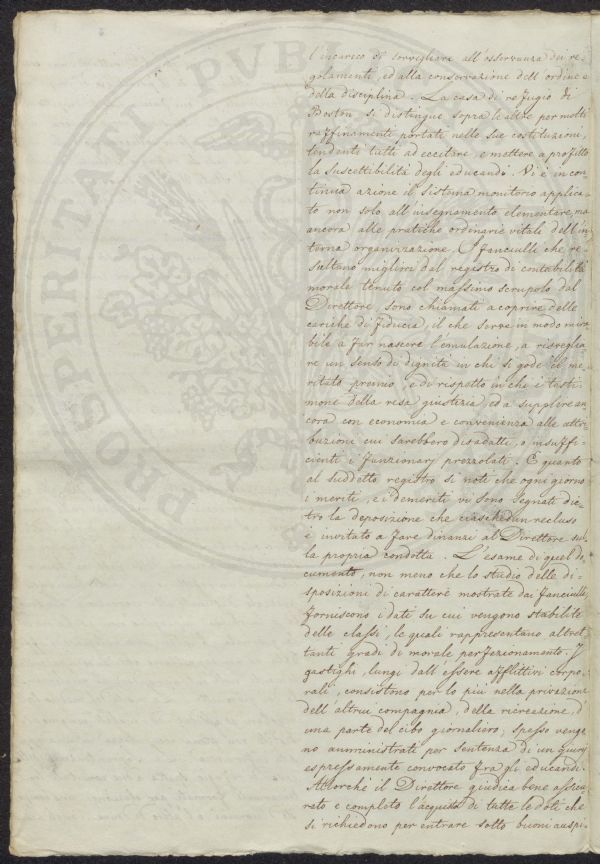 l'incarico di sorvegliare all'osservanza dei re-
golamenti, ed alla conservazione dell'ordine e
della disciplina. La casa di refugio di
Boston si distingue sopra le altre per molti
raffinamenti portati nelle sue costituzioni,
tendenti tutti ad eccitare, e mettere a profitto
la suscettibilità degli educandi. Vi è in con-
tinua azione il sistema monitorio applica-
to non solo all'insegnamento elementare, ma
ancora alle pratiche ordinarie vitali dell'in-
terna organizzazione. I fanciulli che re-
sultano migliori dal registro di contabilità
morale tenuto col massimo scrupolo dal
Direttore, sono chiamati a coprire delle
cariche di fiducia, il che serve in modo mira-
bile a far nascere l'emulazione, a risveglia-
re un senso di dignità in chi si gode il me-
ritato premio, e di rispetto in chi è testi-
mone della resa giustizia, ed a supplire an-
cora con economia e convenienza alle attri-
buzioni cui sarebbero disadatti, o insuffi-
cienti i funzionarj prezzolati. E quanto
al suddetto registro si noti che ogni giorno
i meriti, e i demeriti vi sono segnati die-
tro la deposizione che ciaschedun recluso
è invitato a fare dinanzi al Direttore sul-
la propria condotta. L'esame di quel do-
cumento, non meno che lo studio delle di-
sposizioni di carattere mostrate dai fanciulli,
forniscono i dati su cui vengono stabilite
delle classi, le quali rappresentano altret-
tanti gradi di morale perfezionamento. I
gastighi, lungi dall'essere afflittivi corpo-
rali, consistono per lo più nella privazione
dell'altrui compagnia, della ricreazione, d'
una parte del cibo giornaliero, spesso vengo-
no amministrati per sentenza di un Jury
espressamente convocato fra gli educandi.
Allorchè il Direttore giudica bene assicu-
rato e completo l'acquisto di tutte le doti che
si richiedono per entrare sotto buoni auspi-
PROSPERITATI PVB